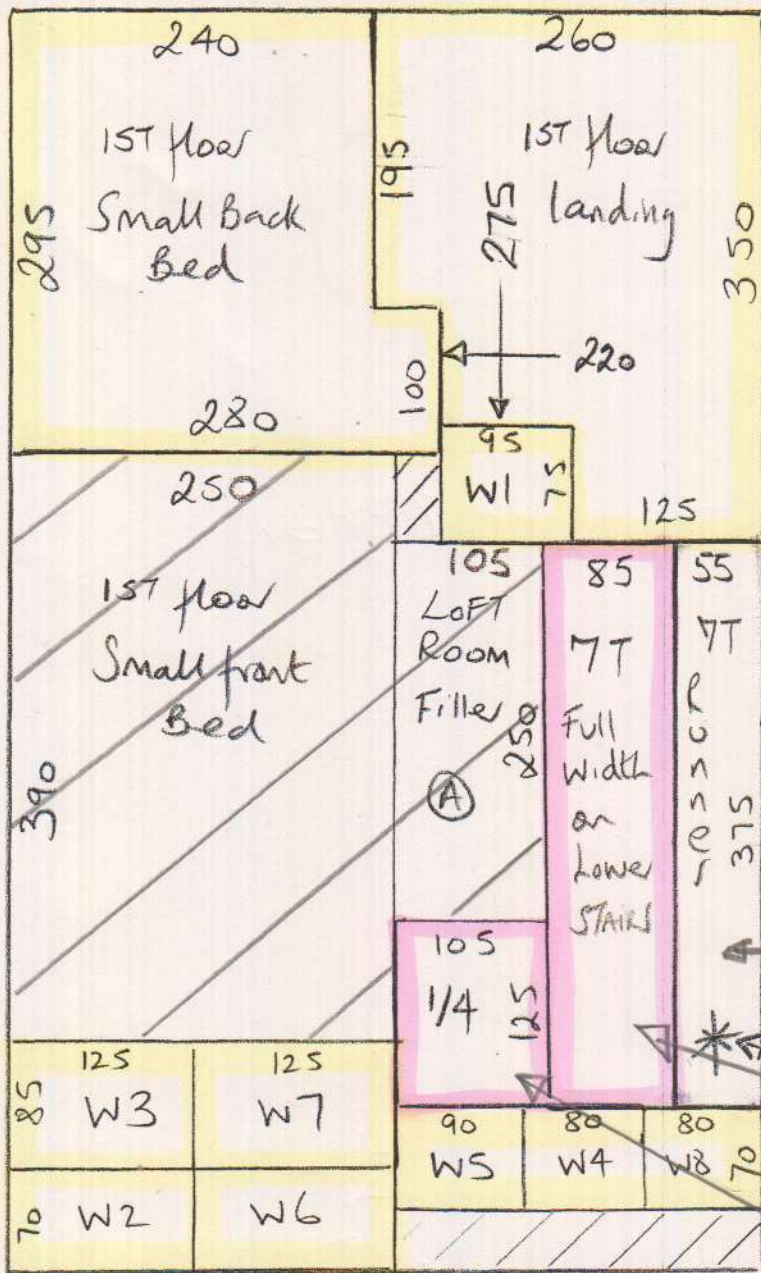 240
1ST floor
Small Back
Bed
295
280
195
100
260
1ST floor
landing
275
350
220
95
W1
75
125
250
1ST floor
Small front
Bed
390
105
LOFT
ROOM
Filler
250
A
85
7T
Full
Width
on
Lower
STAIRS
55
7T
375
105
1/4
125
125
W3
85
125
W7
70
W2
W6
90
W5
80
W4
80
W8
70